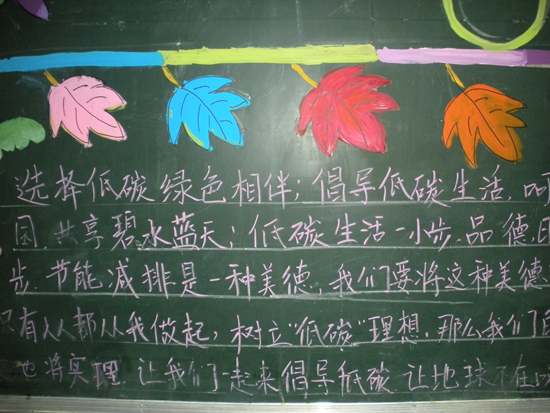 选择低碳绿色相伴；倡导低碳生活，呵
园，共享碧水蓝天；低碳生活一小步，品德
步，节能减排是一种美德，我们要将这种美德
只有人人都从我做起，树立“低碳”理想，那么我们
也将实理，让我们一起来倡导低碳，让地球不在